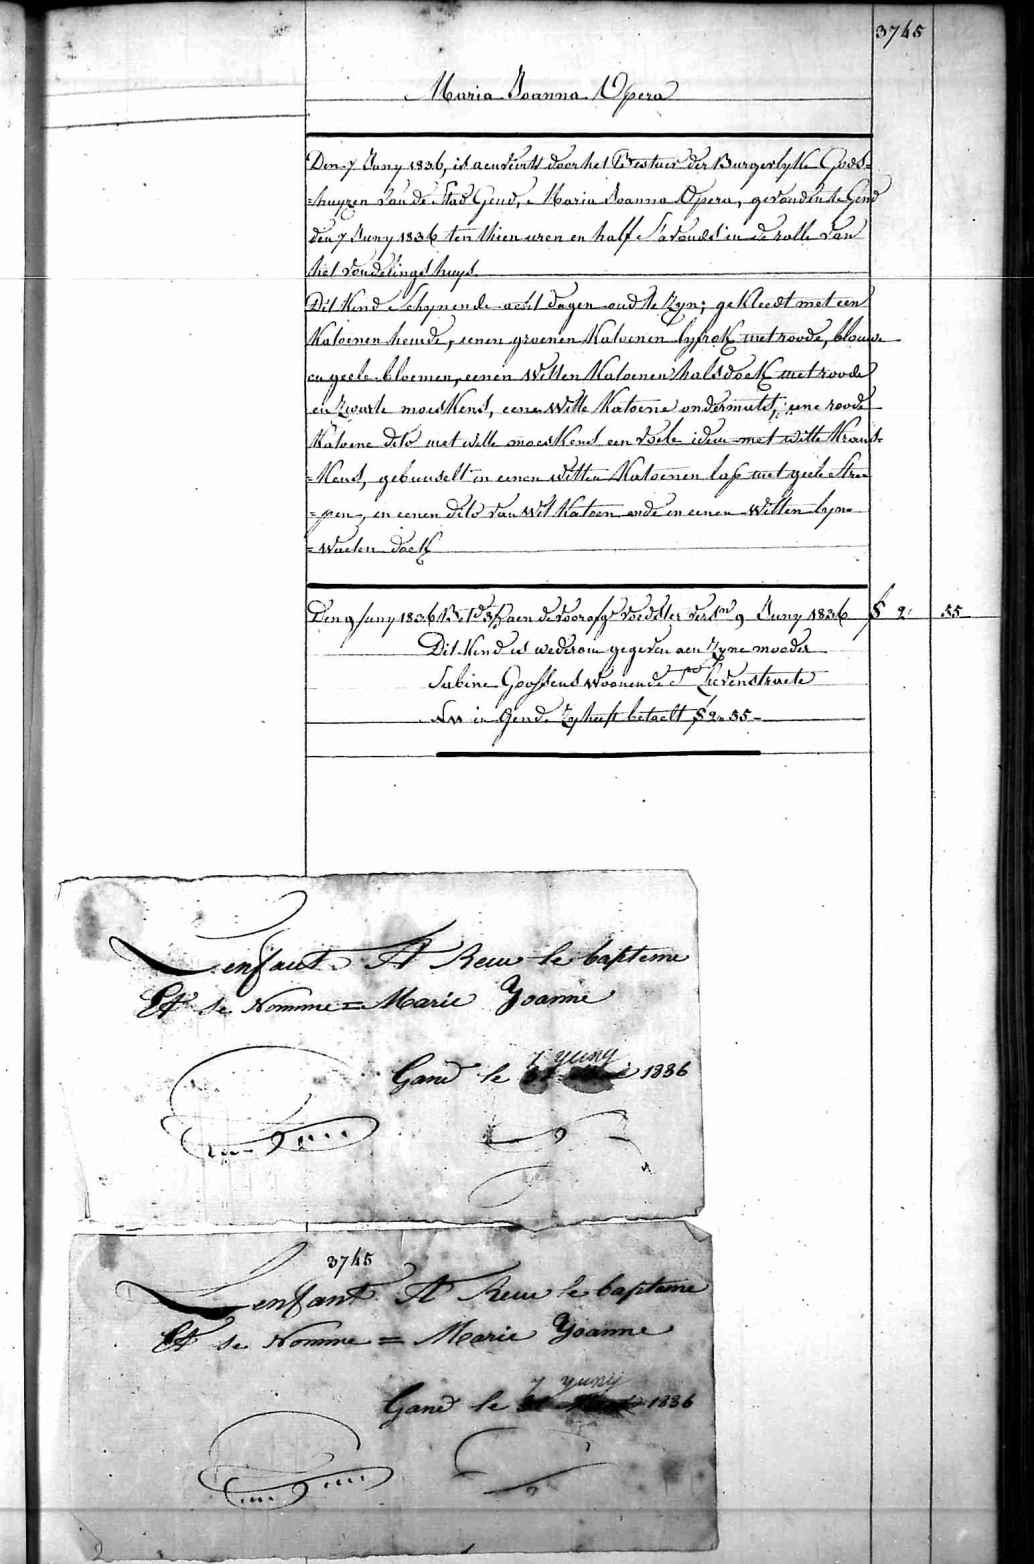 3745
Maria Joanna Opera
Den 7 Juny 1836, is aenveirt door het Bestuer der Burgerlyke Gods=
=huyzen van de Stad Gend, Maria Joanna Opera, gevonden te Gend
den 7 Juny 1836 ten thien uren en half s'avonds in de rolle van
het vondelings huys.
Dit Kind schynende acht dagen oud te zyn; gekleedt met een
Katoenen hemde, eenen groenen Katoenen lyfrok met roode, blouwe
en geele bloemen, eenen witten Katoenen halsdoek met roode
en zwarte moeskens, eene witte Katoene ondermuts, eene roode
Katoene dito met witte moeskens een voele idem met witte Krans=
=Kens, gebunselt in eenen witten Katoenen lap met geele Stree
=pen, en eenen dito van wit Katoen ende in eenen witten lyn=
=waeten doek
Den 9 Juny 1836 aen de voorafge voedster 9 Juny 1836 2 55
Dit Kind is wederom gegeven aen zyne moeder
Sabine Goossens woonende St Lievenstraete
in Gend. Zy heeft betaelt 2 = 55 -
L'enfant At Recu le bapteme
Et se Nomme = Marie Yoanne
7 yuny
Gand le 1836
3745
L'enfant At Recu le bapteme
Et se Nomme = Marie Yoanne
7 yuny
Gand le 1836